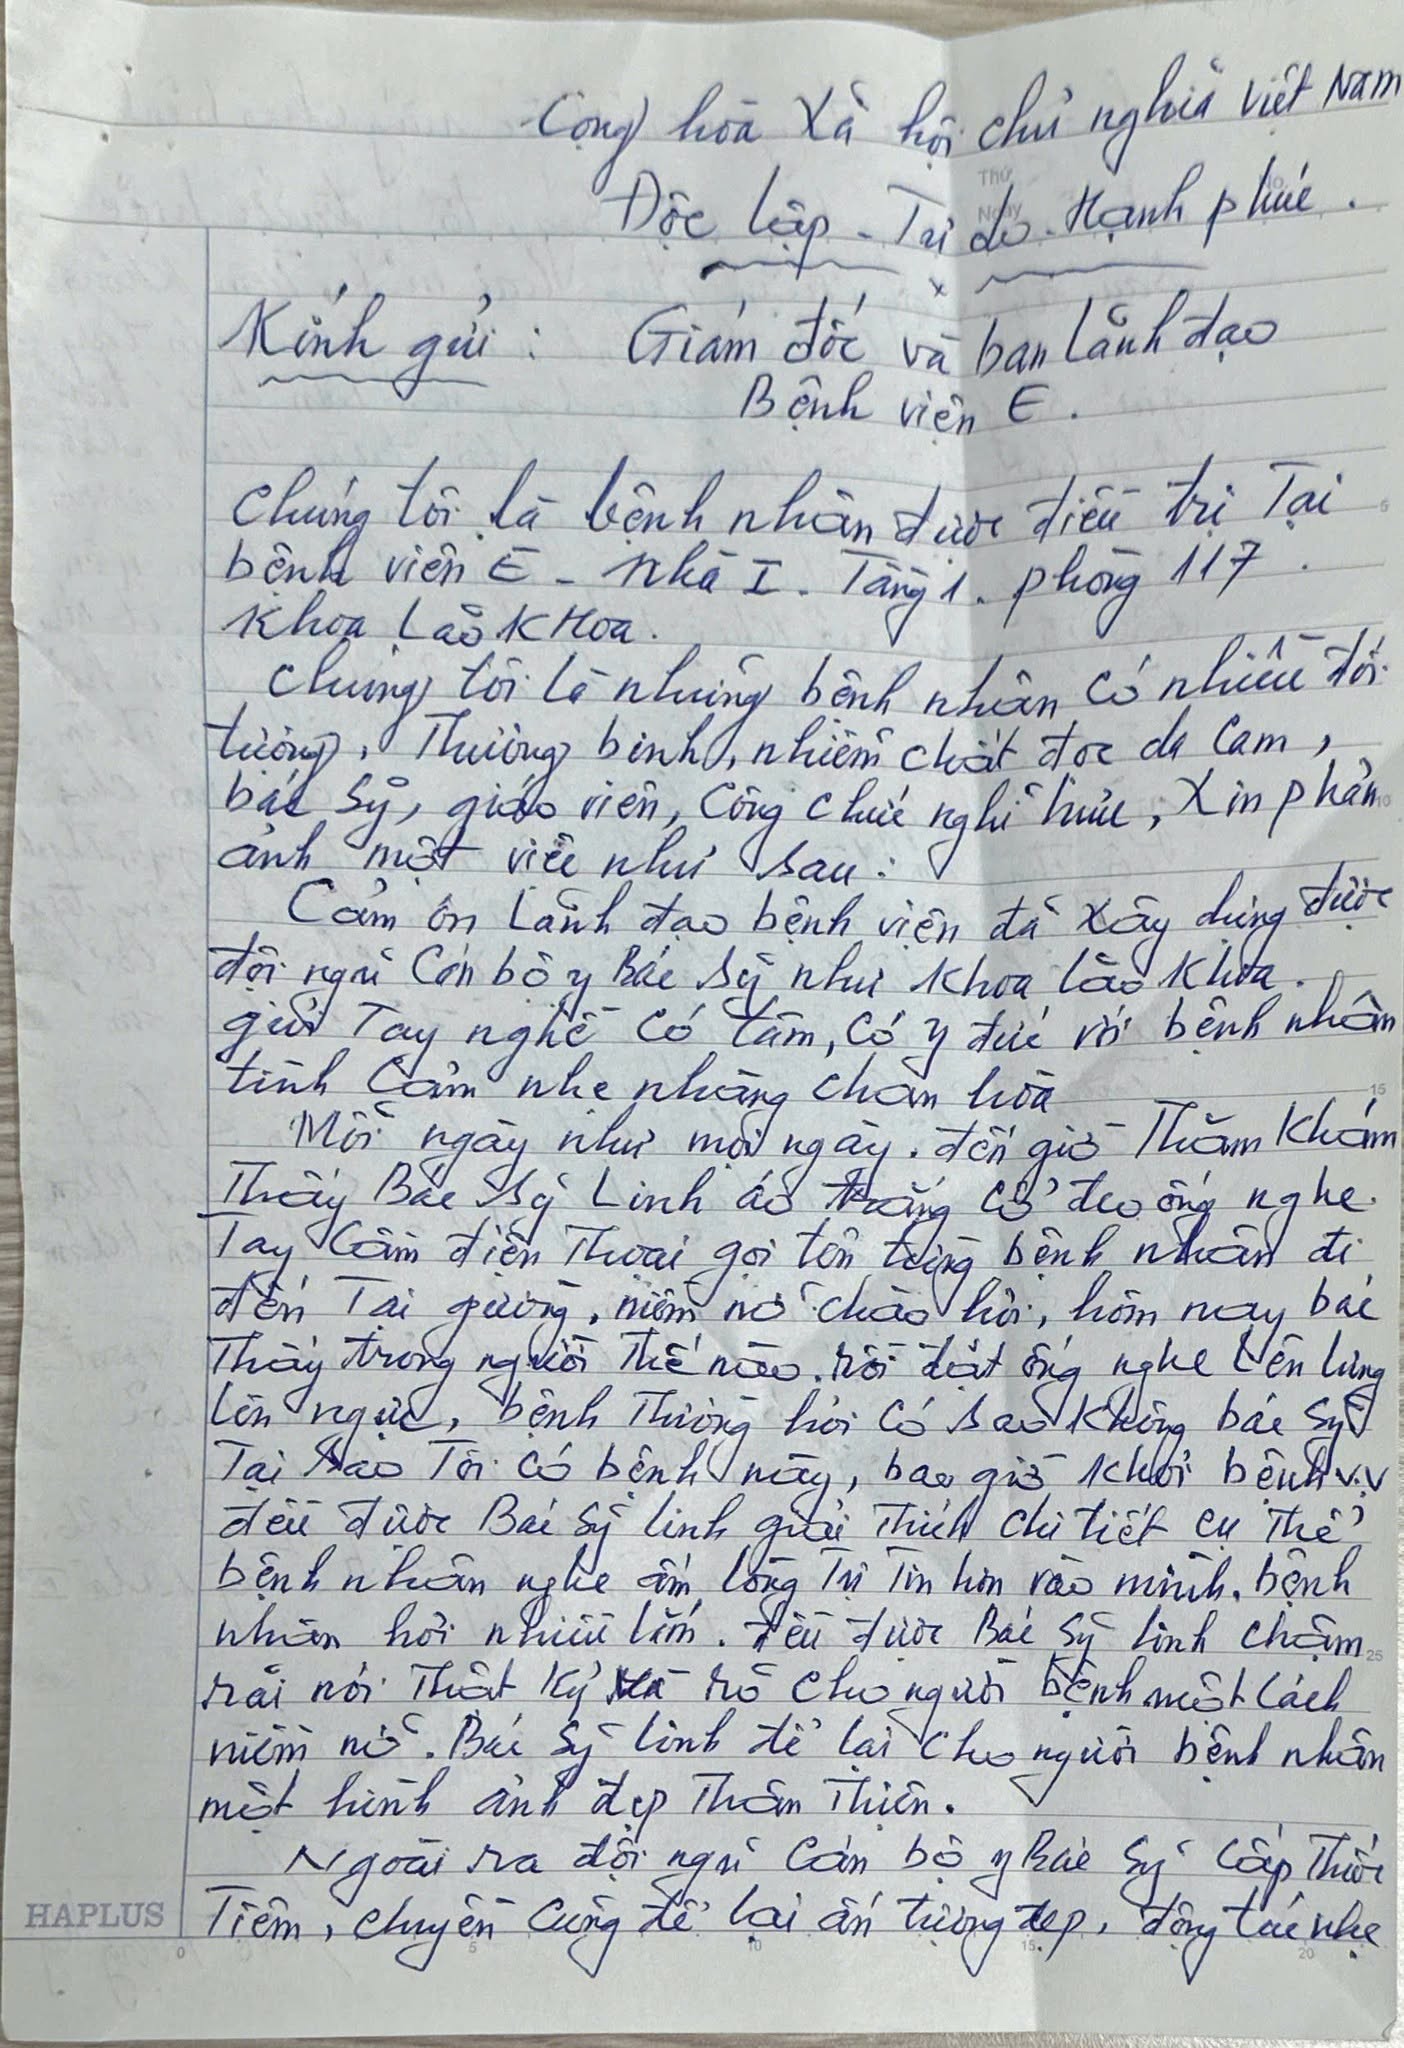 Cộng hòa Xã hội chủ nghĩa Việt Nam
Thứ
Ngày
No.
Độc lập - Tự do - Hạnh phúc.
Kính gửi : Giám đốc và ban lãnh đạo
Bệnh viện E.
Chúng tôi là bệnh nhân được điều trị Tại
bệnh viện E - Nhà I. Tầng 1. phòng 117.
Khoa Lão Khoa.
Chúng tôi là những bệnh nhân có nhiều đối
tượng, Thương binh, nhiễm chất độc da cam,
bác sỹ, giáo viên, Công chức nghỉ hưu, Xin phản
ánh một việc như sau:
Cảm ơn Lãnh đạo bệnh viện đã xây dựng được
đội ngũ cán bộ y Bác sỹ như Khoa lão Khoa.
giỏi Tay nghề có tâm, có y đức với bệnh nhân
tình cảm nhẹ nhàng chan hòa
Mỗi ngày như mọi ngày. đến giờ Thăm Khám
Thấy Bác sỹ Linh áo trắng cổ đeo ống nghe.
Tay cầm điện Thoại gọi tên từng bệnh nhân đi
đến Tại giường, niềm nở chào hỏi, hôm nay bác
Thấy trong người Thế nào. rồi đặt ống nghe lên lưng
lên ngực, bệnh Thường hỏi có sao không bác sỹ
Tại sao Tôi có bệnh này, bao giờ khỏi bệnh v.v
đều được Bác sỹ linh giải Thích chi tiết cụ Thể
bệnh nhân nghe ấm lòng Tự Tin hơn vào mình. bệnh
nhân hỏi nhiều lắm. đều được Bác sỹ linh chậm
rãi nói Thật kỹ rõ cho người bệnh một cách
niềm nở. Bác sỹ linh để lại cho người bệnh nhân
một hình ảnh đẹp Thân Thiện.
Ngoài ra đội ngũ cán bộ y Bác sỹ Cấp Thuốc
Tiêm, chuyền cũng để lại ấn tượng đẹp, động tác nhẹ
HAPLUS
0 5 10 15 20